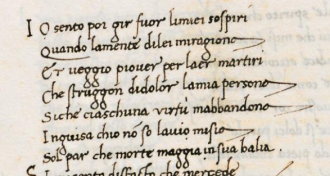 I O sento poi gir fuor limiei sospiri
Quando lamente dilei miragiono
Et veggio piover per laer martiri
Che struggon didolor lamia persono
Si che ciaschuna virtu mabbandono
Inguisa chio no so lavio misio
Sol par che morte maggia insua balia